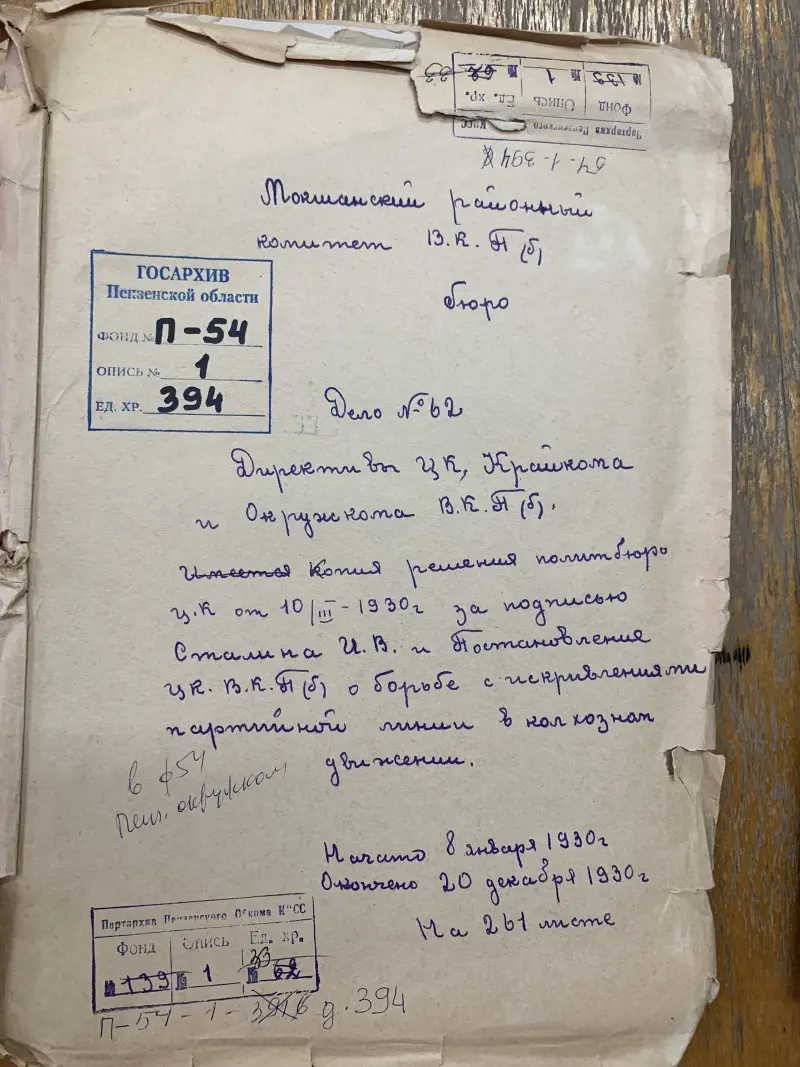 Партархив Пензенского КПСС
Фонд Опись Ед. хр.
№ 139 № 1 № 62 33
54-1-394
Мокшанский районный
комитет В.К.П(б)
бюро
ГОСАРХИВ
Пензенской области
ФОНД № П-54
ОПИСЬ № 1
ЕД. ХР. 394
Дело № 62
Директивы ЦК, Крайкома
и Окружкома В.К.П(б).
Имеется Копия решения политбюро
ЦК от 10/III-1930г за подписью
Сталина И.В. и Постановления
ЦК. В.К.П(б) о борьбе с искривлениями
партийной линии в колхозном
движении.
в ф54
Пенз. окружком
Начато 8 января 1930г
Окончено 20 декабря 1930г
На 261 листе
Партархив Пензенского Обкома КПСС
Фонд Опись Ед. хр.
33
№ 139 № 1 № 62
П-54-1- д. 394